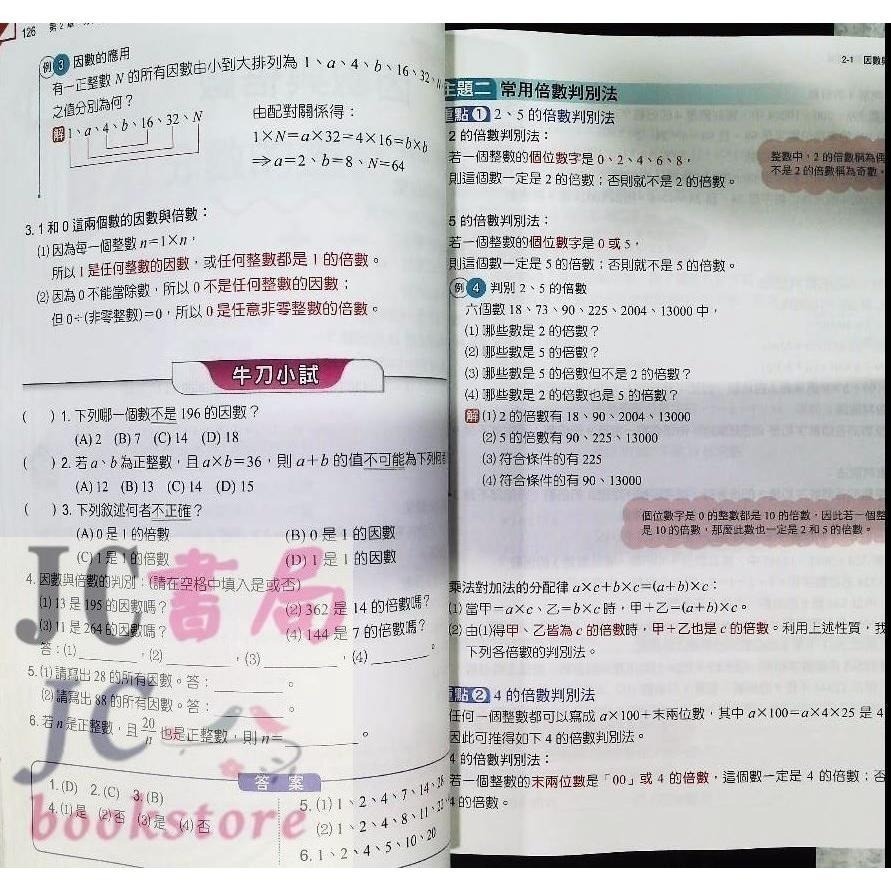 126 第2章
例3 因數的應用
有一正整數 N 的所有因數由小到大排列為 1、a、4、b、16、32、N
之值分別為何？
解 1、a、4、b、16、32、N
由配對關係得：
1×N＝a×32＝4×16＝b×b
⇒a＝2、b＝8、N＝64
3. 1 和 0 這兩個數的因數與倍數：
(1) 因為每一個整數 n＝1×n，
所以 1 是任何整數的因數，或任何整數都是 1 的倍數。
(2) 因為 0 不能當除數，所以 0 不是任何整數的因數；
但 0÷(非零整數)＝0，所以 0 是任意非零整數的倍數。
牛刀小試
( ) 1. 下列哪一個數不是 196 的因數？
(A) 2 (B) 7 (C) 14 (D) 18
( ) 2. 若 a、b 為正整數，且 a×b＝36，則 a＋b 的值不可能為下列何
(A) 12 (B) 13 (C) 14 (D) 15
( ) 3. 下列敘述何者不正確？
(A) 0 是 1 的倍數 (B) 0 是 1 的因數
(C) 1 是 1 的倍數 (D) 1 是 1 的因數
4. 因數與倍數的判別：(請在空格中填入是或否)
(1) 13 是 195 的因數嗎？ (2) 362 是 14 的倍數嗎？
(3) 11 是 264 的因數嗎？ (4) 144 是 7 的倍數嗎？
答：(1)＿＿＿，(2)＿＿＿，(3)＿＿＿，(4)＿＿＿。
5. (1) 請寫出 28 的所有因數。答：＿＿＿。
(2) 請寫出 88 的所有因數。答：＿＿＿。
6. 若 n 是正整數，且 20/n 也是正整數，則 n＝＿＿＿。
答案
1. (D) 2. (C) 3. (B)
4. (1) 是 (2) 否 (3) 是 (4) 否
5. (1) 1、2、4、7、14、28
(2) 1、2、4、8、11、22
6. 1、2、4、5、10、20
JC書局
JC
bookstore
2-1 因數
主題二 常用倍數判別法
重點1 2、5 的倍數判別法
2 的倍數判別法：
若一個整數的個位數字是 0、2、4、6、8，
則這個數一定是 2 的倍數；否則就不是 2 的倍數。
整數中，2 的倍數稱為偶
不是 2 的倍數稱為奇數。
5 的倍數判別法：
若一個整數的個位數字是 0 或 5，
則這個數一定是 5 的倍數；否則就不是 5 的倍數。
例4 判別 2、5 的倍數
六個數 18、73、90、225、2004、13000 中，
(1) 哪些數是 2 的倍數？
(2) 哪些數是 5 的倍數？
(3) 哪些數是 5 的倍數但不是 2 的倍數？
(4) 哪些數是 2 的倍數也是 5 的倍數？
解 (1) 2 的倍數有 18、90、2004、13000
(2) 5 的倍數有 90、225、13000
(3) 符合條件的有 225
(4) 符合條件的有 90、13000
個位數字是 0 的整數都是 10 的倍數，因此若一個整
是 10 的倍數，那麼此數也一定是 2 和 5 的倍數。
乘法對加法的分配律 a×c＋b×c＝(a＋b)×c：
(1) 當甲＝a×c、乙＝b×c 時，甲＋乙＝(a＋b)×c。
(2) 由(1)得甲、乙皆為 c 的倍數時，甲＋乙也是 c 的倍數。利用上述性質，我
下列各倍數的判別法。
重點2 4 的倍數判別法
任何一個整數都可以寫成 a×100＋末兩位數，其中 a×100＝a×4×25 是 4
因此可推得如下 4 的倍數判別法。
4 的倍數判別法：
若一個整數的末兩位數是「00」或 4 的倍數，這個數一定是 4 的倍數；否
4 的倍數。